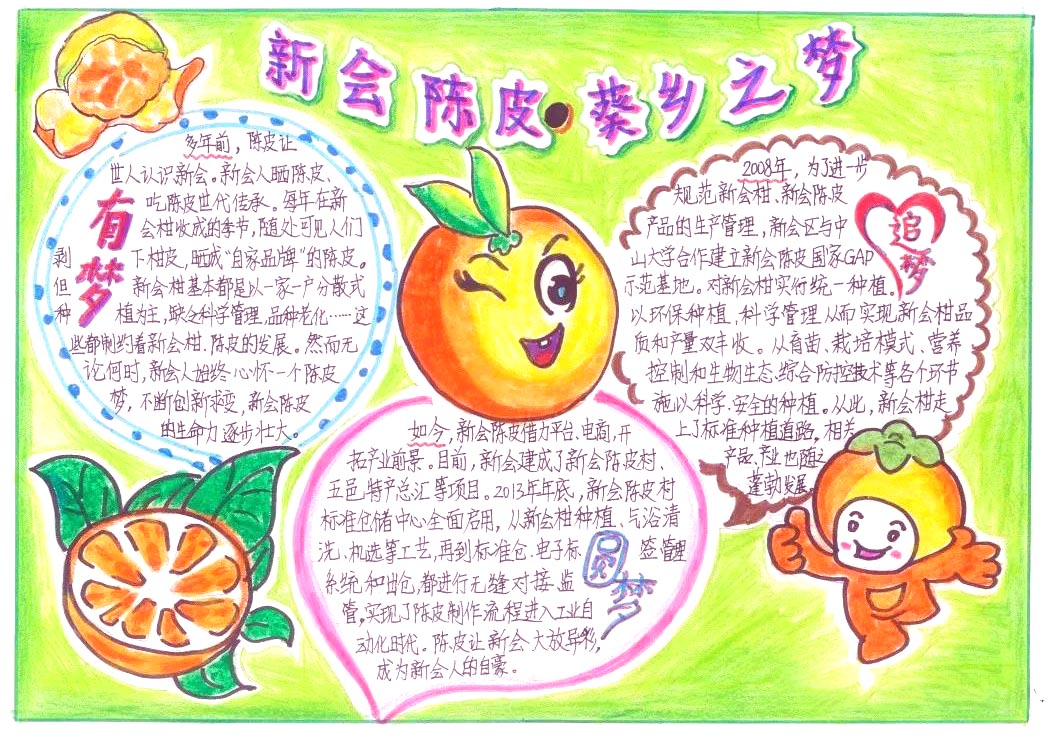 新会陈皮·葵乡之梦
有梦
多年前，陈皮让
世人认识新会。新会人晒陈皮、
吃陈皮世代传承。每年在新
会柑收成的季节，随处可见人们
剥下柑皮，晒成“自家品牌”的陈皮。
但新会柑基本都是以一家一户分散式
种植为主，缺乏科学管理，品种老化……这
些都制约着新会柑、陈皮的发展。然而无
论何时，新会人始终心怀一个陈皮
梦，不断创新求变，新会陈皮
的生命力逐步壮大。
追梦
2008年，为了进一步
规范新会柑、新会陈皮
产品的生产管理，新会区与中
山大学合作建立新会陈皮国家GAP
示范基地。对新会柑实行统一种植。
以环保种植、科学管理从而实现新会柑品
质和产量双丰收。从育苗、栽培模式、营养
控制和生物生态综合防控技术等各个环节
施以科学、安全的种植。从此，新会柑走
上了标准种植道路，相关
产品、产业也随之
蓬勃发展。
圆梦
如今，新会陈皮借力平台、电商，开
拓产业前景。目前，新会建成了新会陈皮村、
五邑特产总汇等项目。2013年年底，新会陈皮村
标准仓储中心全面启用，从新会柑种植、气浴清
洗、机选等工艺，再到标准仓、电子标签管理
系统和出仓，都进行无缝对接监
管，实现了陈皮制作流程进入工业自
动化时代。陈皮让新会大放异彩，
成为新会人的自豪。